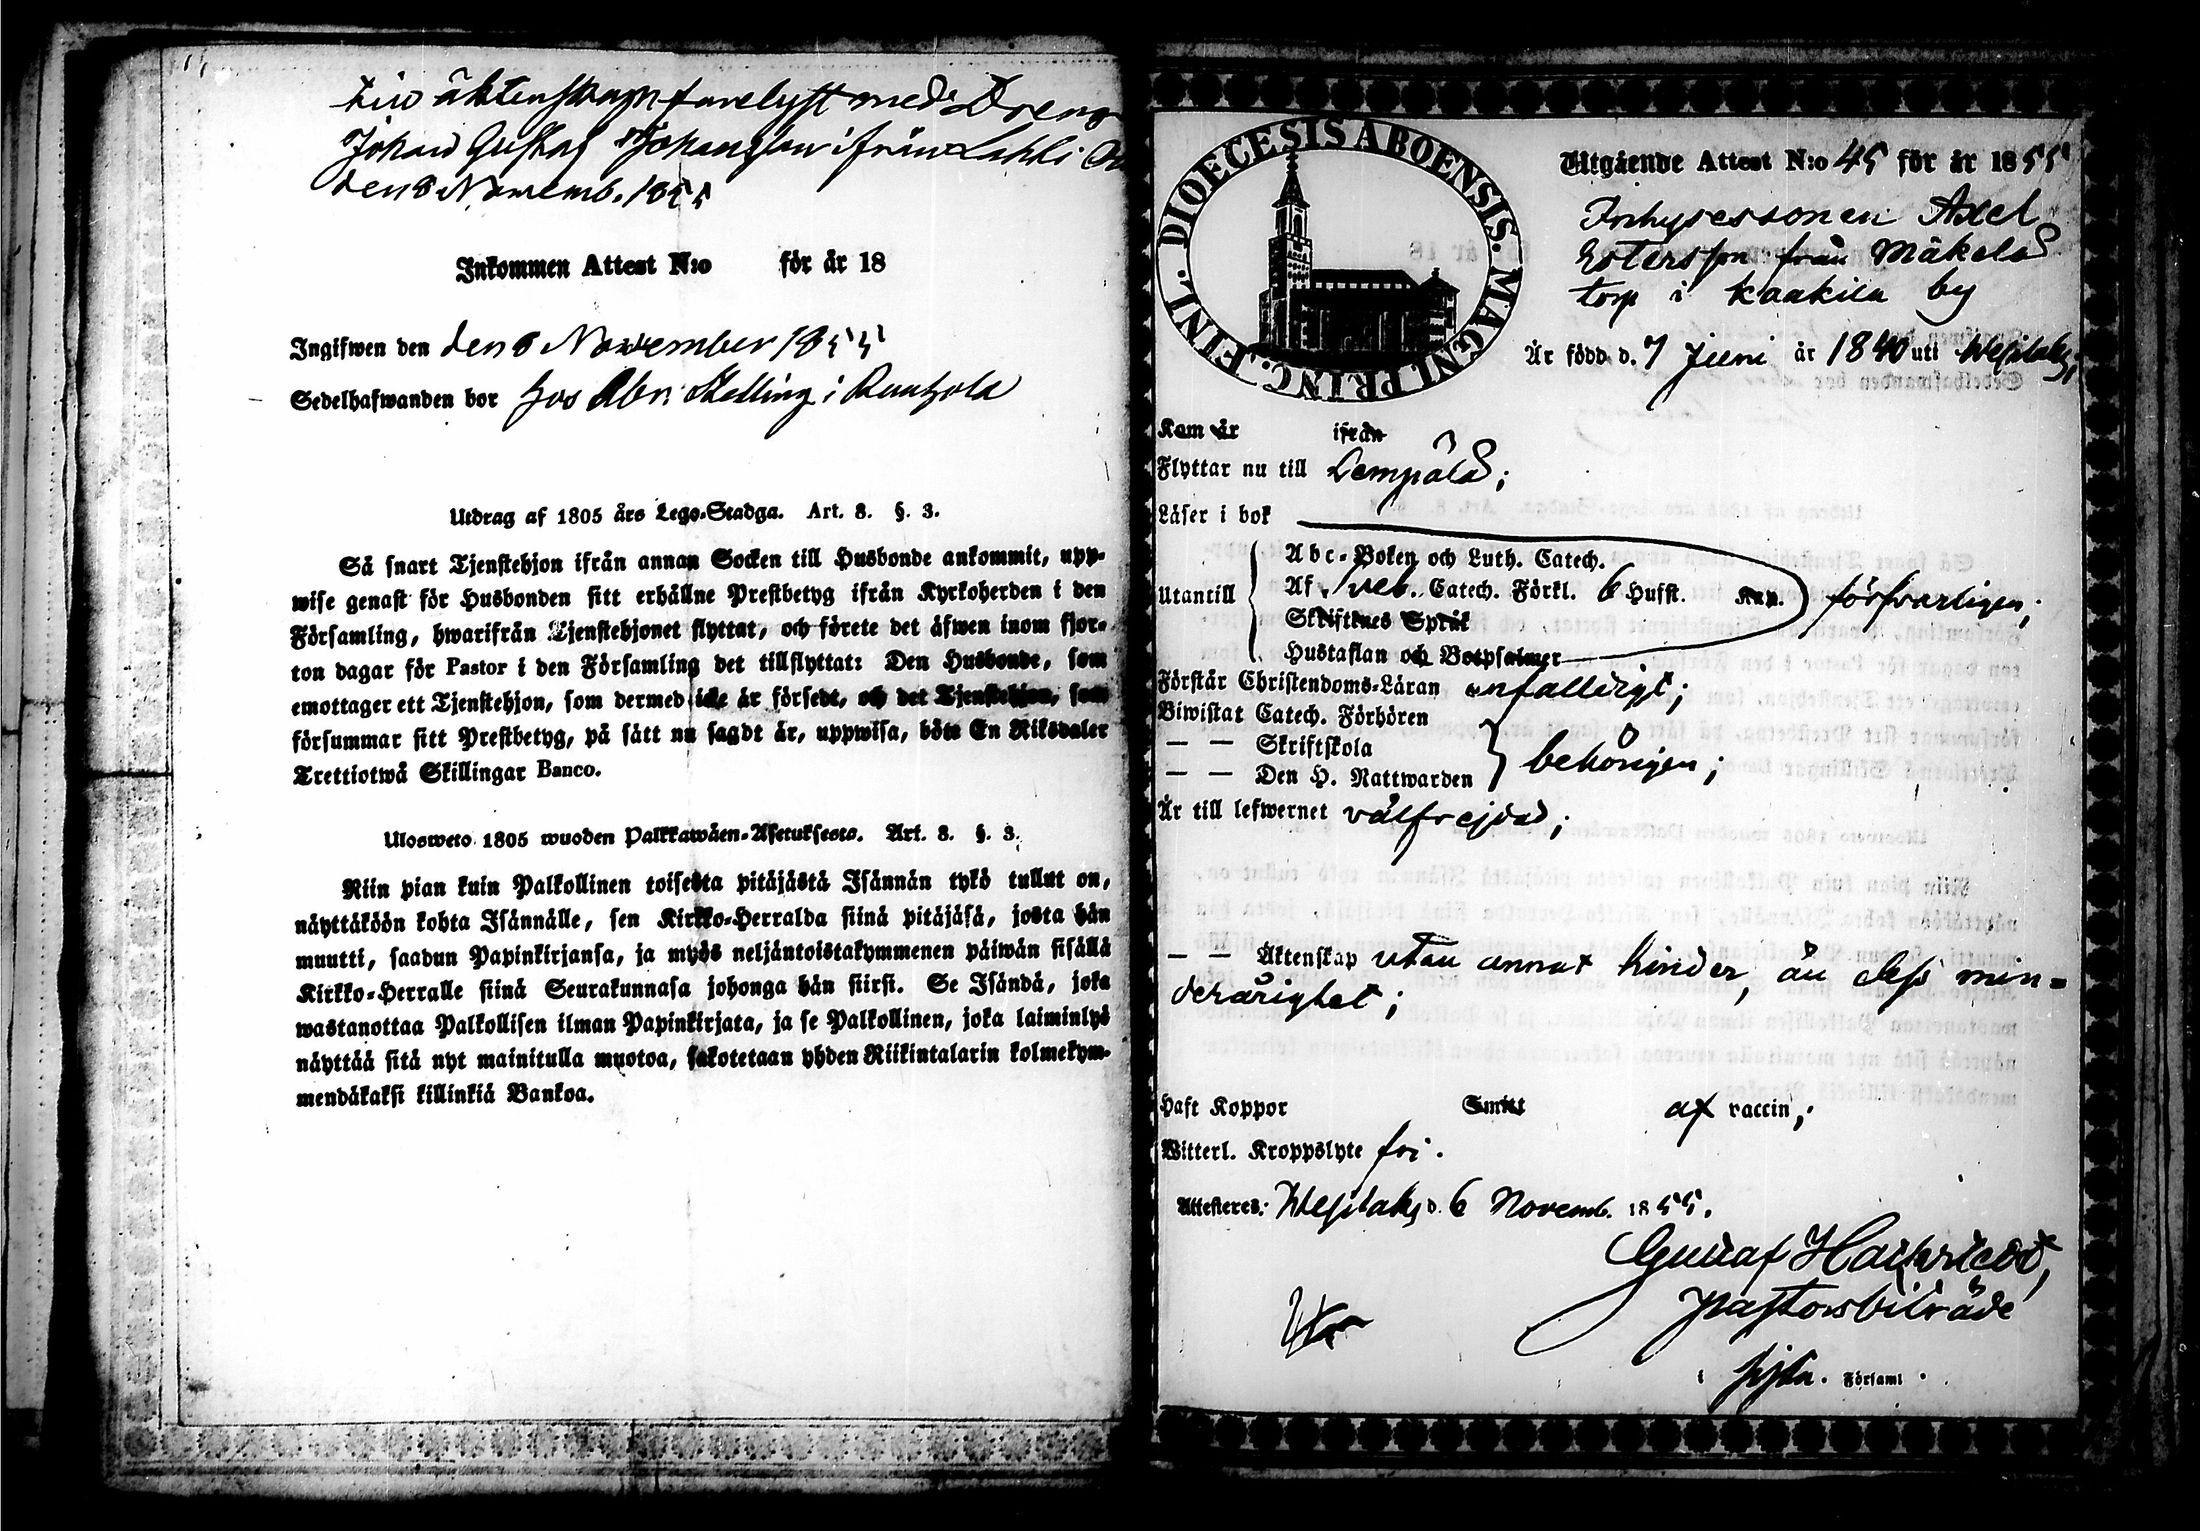 Till äktenskap förelyst med Dreng
Johan Gustaf Johansson ifrån Lahli
den 8 Novemb. 1855
Inkommen Attest N:o för år 18
Ingifwen den den 8 November 1855
Sedelhafwanden bor hos Abr: Helling i
Utdrag af 1805 års Lego-Stadga. Art. 8. §. 3.
Så snart Tjenstehjon ifrån annan Socken till Husbonde ankommit, upp-
wise genast för Husbonden sitt erhållne Prestbetyg ifrån Kyrkoherden i den
Församling, hwarifrån Tjenstehjonet flyttat, och förete det äfwen inom fjor-
ton dagar för Pastor i den Församling det tillflyttat: Den Husbonde, som
emottager ett Tjenstehjon, som dermed icke är försedt, och det Tjenstehjon, som
försummar sitt Prestbetyg, på sätt nu sagdt är, uppwisa, böte En Riksdaler
Trettiotwå Skillingar Banco.
Ulosweto 1805 wuoden Palkkawäen-Asetuksesta. Art. 8. §. 3.
Niin pian kuin Palkollinen toisesta pitäjästä Isännän tykö tullut on,
näyttäköön kohta Isännälle, sen Kirkko-Herralda siinä pitäjäsä, josta hän
muutti, saadun Papinkirjansa, ja myös neljäntoistakymmenen päiwän sisällä
Kirkko-Herralle siinä Seurakunnasa johonga hän siirsi. Se Isändä, joka
wastanottaa Palkollisen ilman Papinkirjata, ja se Palkollinen, joka laiminlyö
näyttää sitä nyt mainitulla muotoa, sakotetaan yhden Riikintalarin kolmekym-
mendäkaksi killinkiä Bankoa.
DIOECESIS ABOENSIS. MAGNI PRINC. FINL.
Utgående Attest N:o 45 för år 1855
Inhysessonen Axel
Estersson från Mäkelä
torp i Kaakila by
Är född d. 7 Juni år 1840 uti Wesilaks;
Kom år ifrån
Flyttar nu till Lempälä;
Läser i bok
Abc-Boken och Luth. Catech.
Utantill Af Sveb. Catech. Förkl. 6 Hufst. Kap. försvarligen;
Skriftenes Språk
Hustaflan och Botpsalmer
Förstår Christendoms-Läran enfalligt;
Biwistat Catech. Förhören
— — Skriftskola behörigen;
— — Den H. Nattwarden
Är till lefwernet välfrejdad;
— — Äktenskap utan annat hinder, än dess min-
derårighet;
Haft Koppor Smitt af vaccin;
Witterl. Kroppslyte fri.
Attesteres: Wesilaks d. 6 Novemb. 1855.
Gustaf
pastorsbiträde
i Församl.